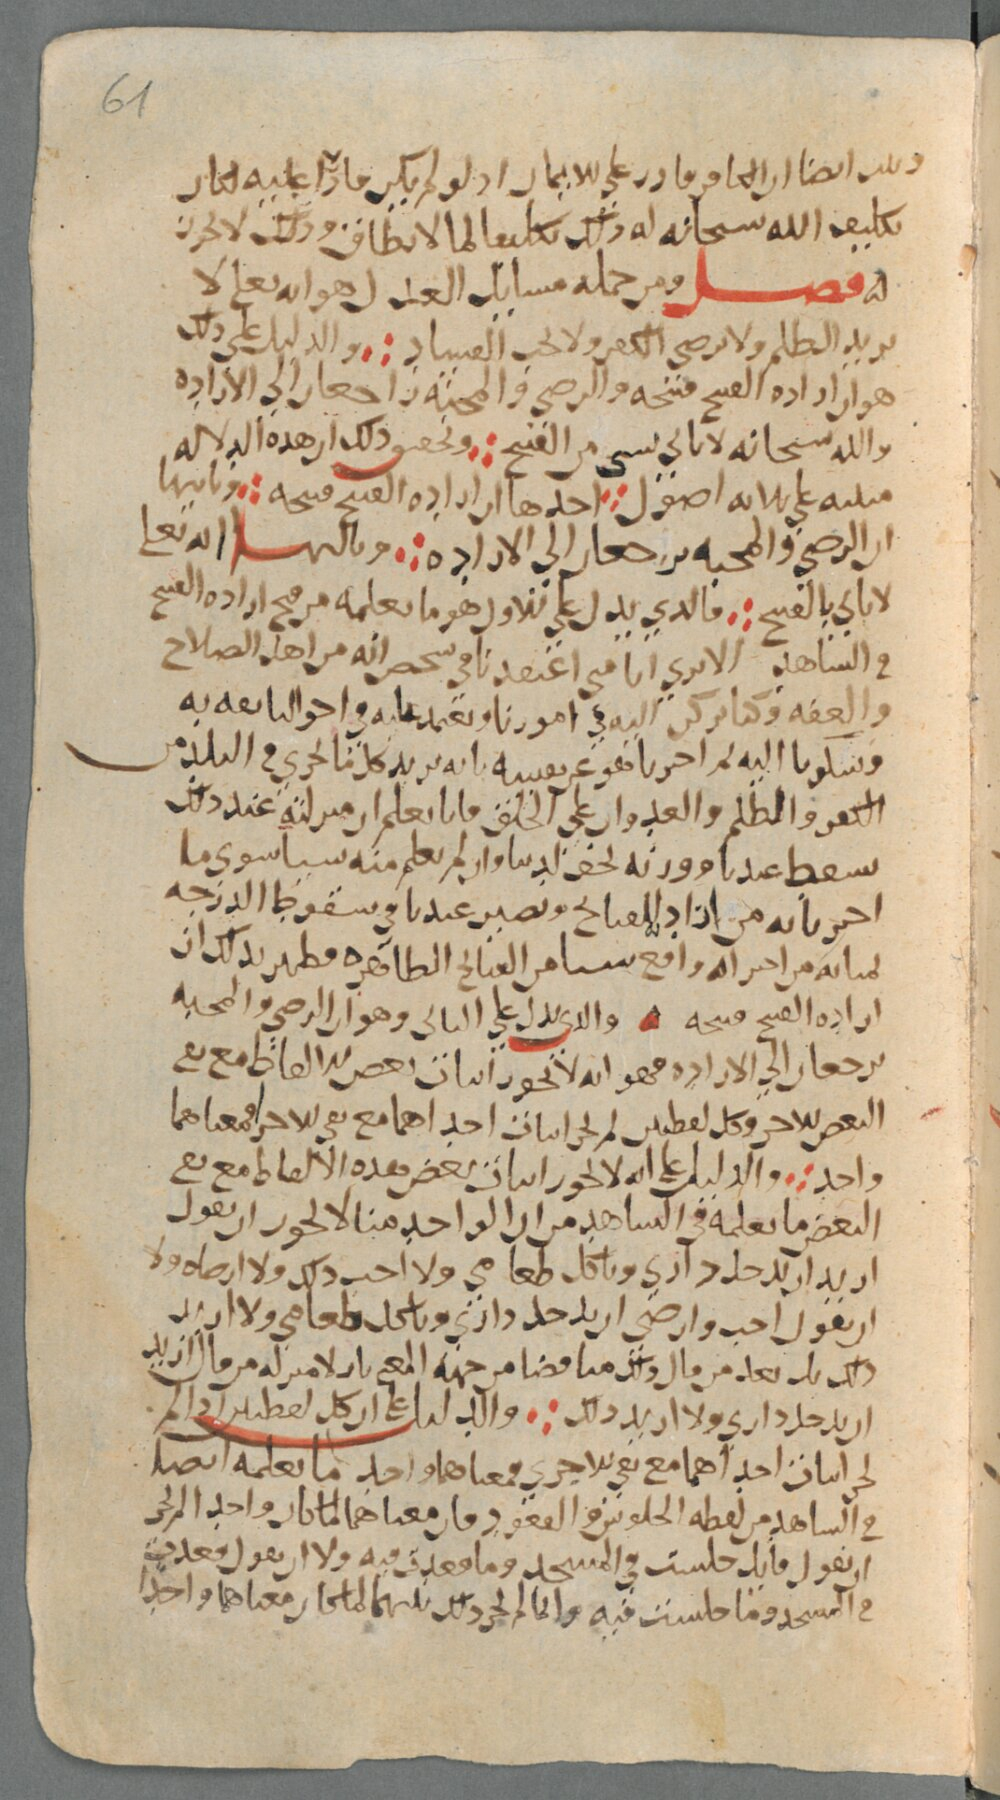 61
وثبت ايضا ان الكافر قادر على الايمان اذ لو لم يكن قادرا عليه لكان
تكليف الله سبحانه له ذلك تكليفا لما لا يطاق وذلك لا يجوز
فصل ومن جملة مسايل العدل هو انه تعلى لا
يريد الظلم ولا يرضى الكفر ولا يحب الفساد والدليل على ذلك
هو ان ارادة القبيح قبيحة والرضى والمحبة راجعان الى الارادة
والله سبحانه لا ياتي بشي من القبيح وتحقيق ذلك ان هذه الدلالة
مبنية على ثلاثة اصول احدها ان ارادة القبيح قبيحة وثانيها
ان الرضى والمحبة يرجعان الى الارادة وثالثها انه تعلى
لا ياتي بالقبيح فالذي يدل على الاول هو ما نعلمه من قبح ارادة القبيح
في الشاهد الا ترى انا متى اعتقدنا في شخص انه من اهل الصلاح
والعفة وكنا نركن اليه في امورنا ونعتمد عليه في احوالنا
اليه ثم اخبرنا هو عن نفسه بانه يريد كل ما يجري في البلد من
الكفر والظلم والعدوان على الخلق فانا نعلم ان منزلته عند ذلك
تسقط عندنا ووزنه يخف لدينا وان لم نعلم منه شيا سوى ما
اخبرنا به من ارادة القبائح ويصير عندنا في سقوط الدرجة
بمثابة من اخبر انه واقع شيا من القبائح الظاهرة فظهر بذلك ان
ارادة القبيح قبيحة والذي يدل على الثاني وهو ان الرضى والمحبة
يرجعان الى الارادة فهو انه لا يجوز اثبات بعض هذه الفاظ مع نفي
البعض الاخر وكل لفظين لم يجز اثبات احداهما مع نفي الاخرى فمعناهما
واحد والدليل على انه لا يجوز اثبات بعض هذه الالفاظ مع نفي
البعض ما نعلمه في الشاهد من ان الواحد منا لا يجوز ان يقول
اريد ان يدخل داري وياكل طعامي ولا احب ذلك ولا ارضاه ولا
ان يقول احب وارضى ان يدخل داري وياكل طعامي ولا اريد
ذلك بل يعد من قال ذلك مناقضا من جهة المعنى نازلا منزلة من قال اريد
ان يدخل داري ولا اريد ذلك والدليل على ان كل لفظين اذا لم
يجز اثبات احداهما مع نفي الاخرى فمعناهما واحد ما نعلمه ايضا
في الشاهد من لفظة الجلوس والقعود فان معناهما لما كان واحدا لم يجز
ان يقول قايل جلست في المسجد وما قعدت فيه ولا ان يقول قعدت
في المسجد وما جلست فيه وانما لم يجز ذلك فيهما لما كان معناهما واحدا